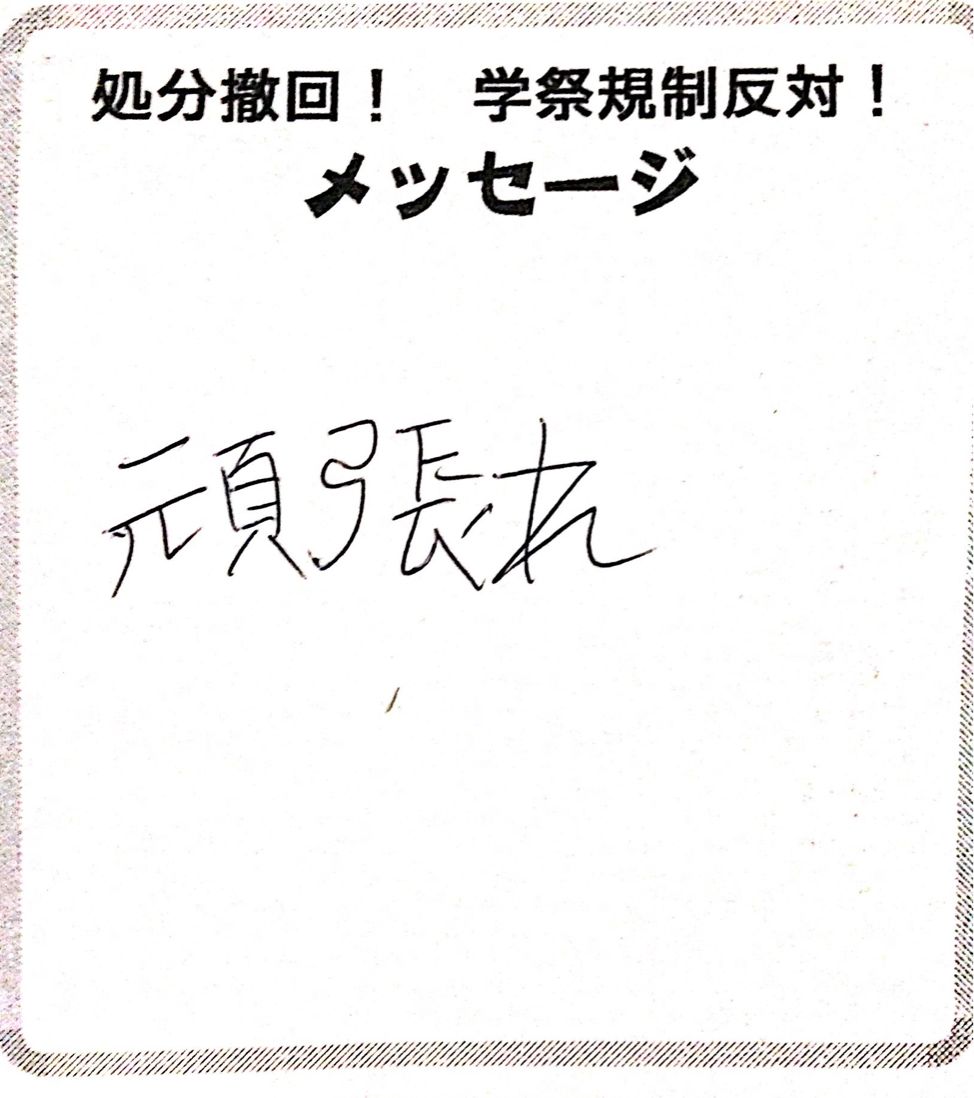 処分撤回！　学祭規制反対！
メッセージ
頑張れ